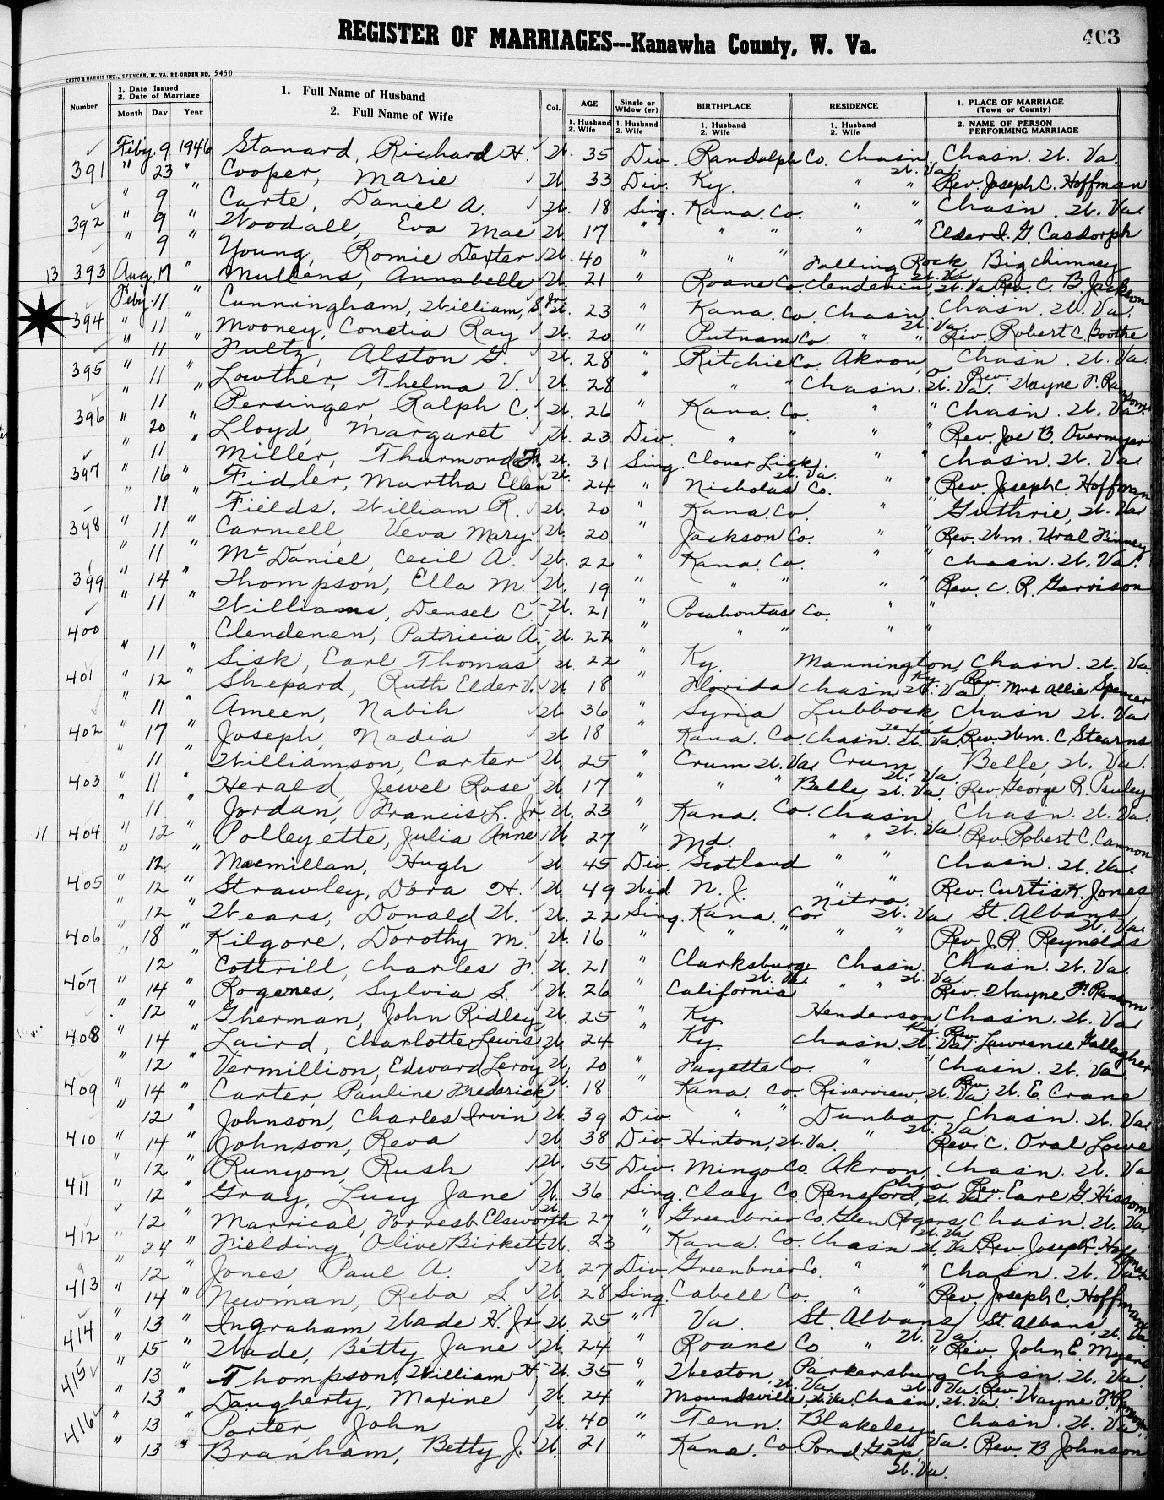 REGISTER OF MARRIAGES---Kanawha County, W. Va.
403
CASTO & HARRIS INC., SPENCER, W. VA. RE-ORDER NO. 5450
Number
1. Date Issued
2. Date of Marriage
Month Day Year
1. Full Name of Husband
2. Full Name of Wife
Col.
AGE
1. Husband
2. Wife
Single or
Widow (er)
1. Husband
2. Wife
BIRTHPLACE
1. Husband
2. Wife
RESIDENCE
1. Husband
2. Wife
1. PLACE OF MARRIAGE
(Town or County)
2. NAME OF PERSON
PERFORMING MARRIAGE
Feby. 9 1946 Stanard, Richard H. W. 35 Div. Randolph Co. Chasn. W. Va. Chasn. W. Va.
391 " 23 " Cooper, Marie W. 33 Div. Ky. " " Rev. Joseph C. Hoffman
" 9 " Carte, Daniel A. W. 18 Sing. Kana. Co. " " Chasn. W. Va.
392 " 9 " Woodall, Eva Mae W. 17 " " " " " Elder I. G. Casdorph
" 9 " Young, Romie Dexter W. 40 " " " Falling Rock W. Va. Big Chimney
13 393 Aug. 17 " Mullens, Annabelle W. 21 " Roane Co. Clendenin, W. Va. Rev. C. B. Jackson
Feby. 11 " Cunningham, William, S. Jr. W. 23 " Kana. Co. Chasn. W. Va. Chasn. W. Va.
394 " 11 " Mooney, Conetia Ray W. 20 " Putnam Co " " Rev. Robert C. Boothe
" 11 " Fultz, Alston G. W. 28 " Ritchie Co. Akron, O Chasn. W. Va.
395 " 11 " Lowther, Thelma V. W. 28 " " " Chasn. W. Va. Rev. Wayne F. Ransom
" 11 " Persinger, Ralph C. W. 26 " Kana. Co. " " Chasn. W. Va
396 " 20 " Lloyd, Margaret W. 23 Div. " " " " Rev. Joe B. Overmyer
" 11 " Miller, Thurmond Jr. W. 31 Sing. Clover Lick, W. Va. " " Chasn. W. Va.
397 " 16 " Fidler, Martha Ellen W. 24 " Nicholas Co. " " Rev. Joseph C. Hoffman
" 11 " Fields, William R. W. 20 " Kana. Co. " Guthrie, W. Va
398 " 11 " Carnell, Veva Mary W. 20 " Jackson Co. " " Rev. Wm. Ural Finney
" 11 " McDaniel, Cecil A. W. 22 " Kana. Co. " " Chasn. W. Va.
399 " 14 " Thompson, Ella M W. 19 " " " " " Rev. C. R. Garrison
" 11 Williams, Densel C. W. 21 " Pocahontas Co. " "
400 Clendenen, Patricia A. W. 22 " " " " "
" 11 Sisk, Earl Thomas W. 22 " Ky. Mannington, Ky. Chasn. W. Va
401 " 12 " Shepard, Ruth Elder V. W 18 " Florida Chasn W. Va. Rev. Mrs Allie Spencer
" 11 " Ameen, Nabih W. 36 " Syria Lubbock Texas Chasn W. Va
402 " 17 " Joseph, Nadia W 18 " Kana. Co. Chasn. W. Va. Rev. Wm. C. Stearns
" 11 " Williamson, Carter W. 25 " Crum W. Va. Crum, W. Va. Belle, W. Va.
403 " 11 " Herald, Jewel Rose W. 17 " " " Belle W. Va. Rev. George R. Pauley
" 11 " Jordan, Francis L. Jr. W. 23 " Kana. Co. Chasn. W. Va Chasn. W. Va.
11 404 " 12 " Polleyette, Julia Anne W 27 " Md. " " Rev. Robert C. Cannon
" 12 " Macmillan, Hugh W 45 Div. Scotland " " Chasn. W. Va.
405 " 12 " Strawley, Dora H. W. 49 Wid. N. J. " " Rev. Curtis K Jones
" 12 " Wears, Donald W. W. 22 Sing. Kana. Co. Nitro, W. Va St. Albans, W. Va.
406 " 18 " Kilgore, Dorothy M. W. 16 " " " " " Rev. J. R. Reynolds
" 12 " Cottrill, Charles F. W. 21 " Clarksburg W. Va. Chasn. W. Va. Chasn. W. Va.
407 " 14 " Rogenes, Sylvia S. W. 26 " California " " Rev. Wayne F. Ransom
" 12 " Gherman, John Ridley W. 25 " Ky. Henderson, Ky. Chasn. W. Va
408 " 14 " Laird, Charlotte Lewis W. 24 " Ky. Chasn. W. Va. Rev. Lawrence Gallagher
" 12 " Vermillion, Edward Leroy W. 20 " Fayette Co. " " Chasn. W. Va
409 " 14 " Carter, Pauline Frederick W. 18 " Kana. Co. Riverview, W. Va. Rev. W. E. Crane
" 12 " Johnson, Charles Irvin W. 39 Div. " " Dunbar, W. Va. Chasn. W. Va
410 " 14 " Johnson, Reva W. 38 Div Hinton, W. Va. " Rev. C. Oral Lowe
" 12 " Runyon, Rush W. 55 Div. Mingo Co. Akron, Ohio Chasn. W. Va
411 " 12 " Gray, Lucy Jane W. 36 Sing. Clay Co. Rensford, W. Va. Rev. Earl G. Hissom
" 12 " Marrical, Forrest Elsworth W. 27 " Greenbrier Co. Glen Rogers, W. Va. Chasn. W. Va
412 " 24 " Fielding, Olive Birkett W. 23 " Kana. Co. Chasn. W. Va. Rev. Joseph C. Hoffman
" 12 " Jones, Paul A. W. 27 Div. Greenbrier Co. " " Chasn. W. Va
413 " 14 " Newman, Reba S W. 28 Sing. Cabell Co. " " Rev. Joseph C. Hoffman
" 13 " Ingraham, Wade H. Jr. W. 25 " Va. St. Albans, W. Va. St. Albans, W. Va
414 " 15 " Wade, Betty Jane W. 24 " Roane Co " " Rev. John E. Myers
" 13 " Thompson, William H. W. 35 " Weston, W. Va. Parkersburg, W. Va. Chasn. W. Va.
415 " 13 " Daugherty, Maxine W. 24 " Moundsville, W. Va. Chasn. W. Va. Rev. Wayne F. Ransom
" 13 Porter, John W. 40 " Tenn. Blakeley, W. Va. Chasn. W. Va.
416 " 13 " Branham, Betty J. W. 21 " Kana. Co. Pond Gap, W. Va. Rev. B Johnson